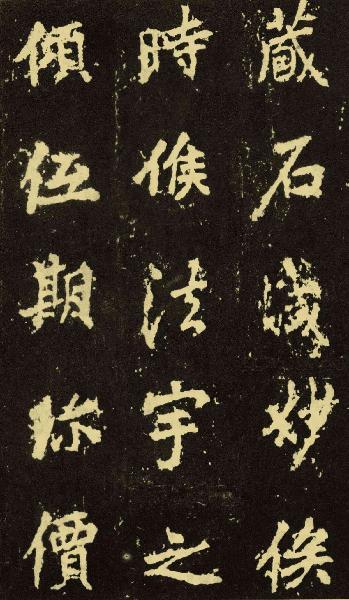 藏石妙俟
時候法宇之
傾伍期價